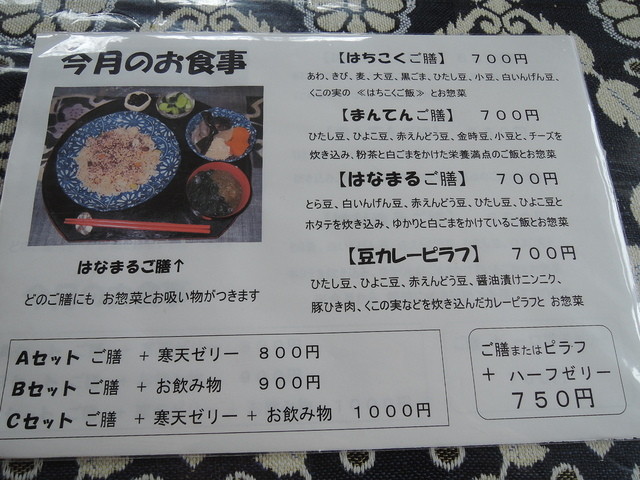 今月のお食事
はなまるご膳↑
どのご膳にも お惣菜とお吸い物がつきます
【はちこくご膳】 700円
あわ、きび、麦、大豆、黒ごま、ひたし豆、小豆、白いんげん豆、
くこの実の ≪はちこくご飯≫ とお惣菜
【まんてんご膳】 700円
ひたし豆、ひよこ豆、赤えんどう豆、金時豆、小豆と、チーズを
炊き込み、粉茶と白ごまをかけた栄養満点のご飯とお惣菜
【はなまるご膳】 700円
とら豆、白いんげん豆、赤えんどう豆、ひたし豆、ひよこ豆と
ホタテを炊き込み、ゆかりと白ごまをかけているご飯とお惣菜
【豆カレーピラフ】 700円
ひたし豆、ひよこ豆、赤えんどう豆、醤油漬けニンニク、
豚ひき肉、くこの実などを炊き込んだカレーピラフと お惣菜
Aセット ご膳 + 寒天ゼリー 800円
Bセット ご膳 + お飲み物 900円
Cセット ご膳 + 寒天ゼリー + お飲み物 1000円
ご膳またはピラフ
+ ハーフゼリー
750円